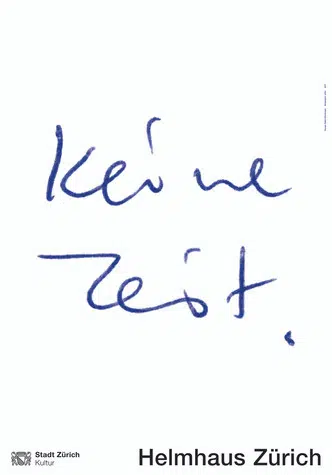 Keine
Zeit.
Stadt Zürich
Kultur
Helmhaus Zürich